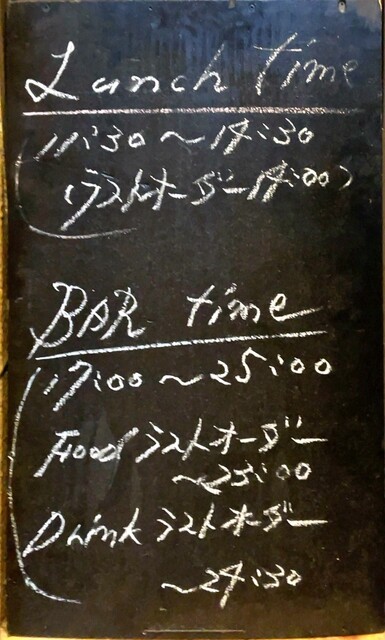 Lunch time
11:30～14:30
(ラストオーダー14:00)
BAR time
17:00～25:00
Food ラストオーダー
～23:00
Drink ラストオーダー
～24:30